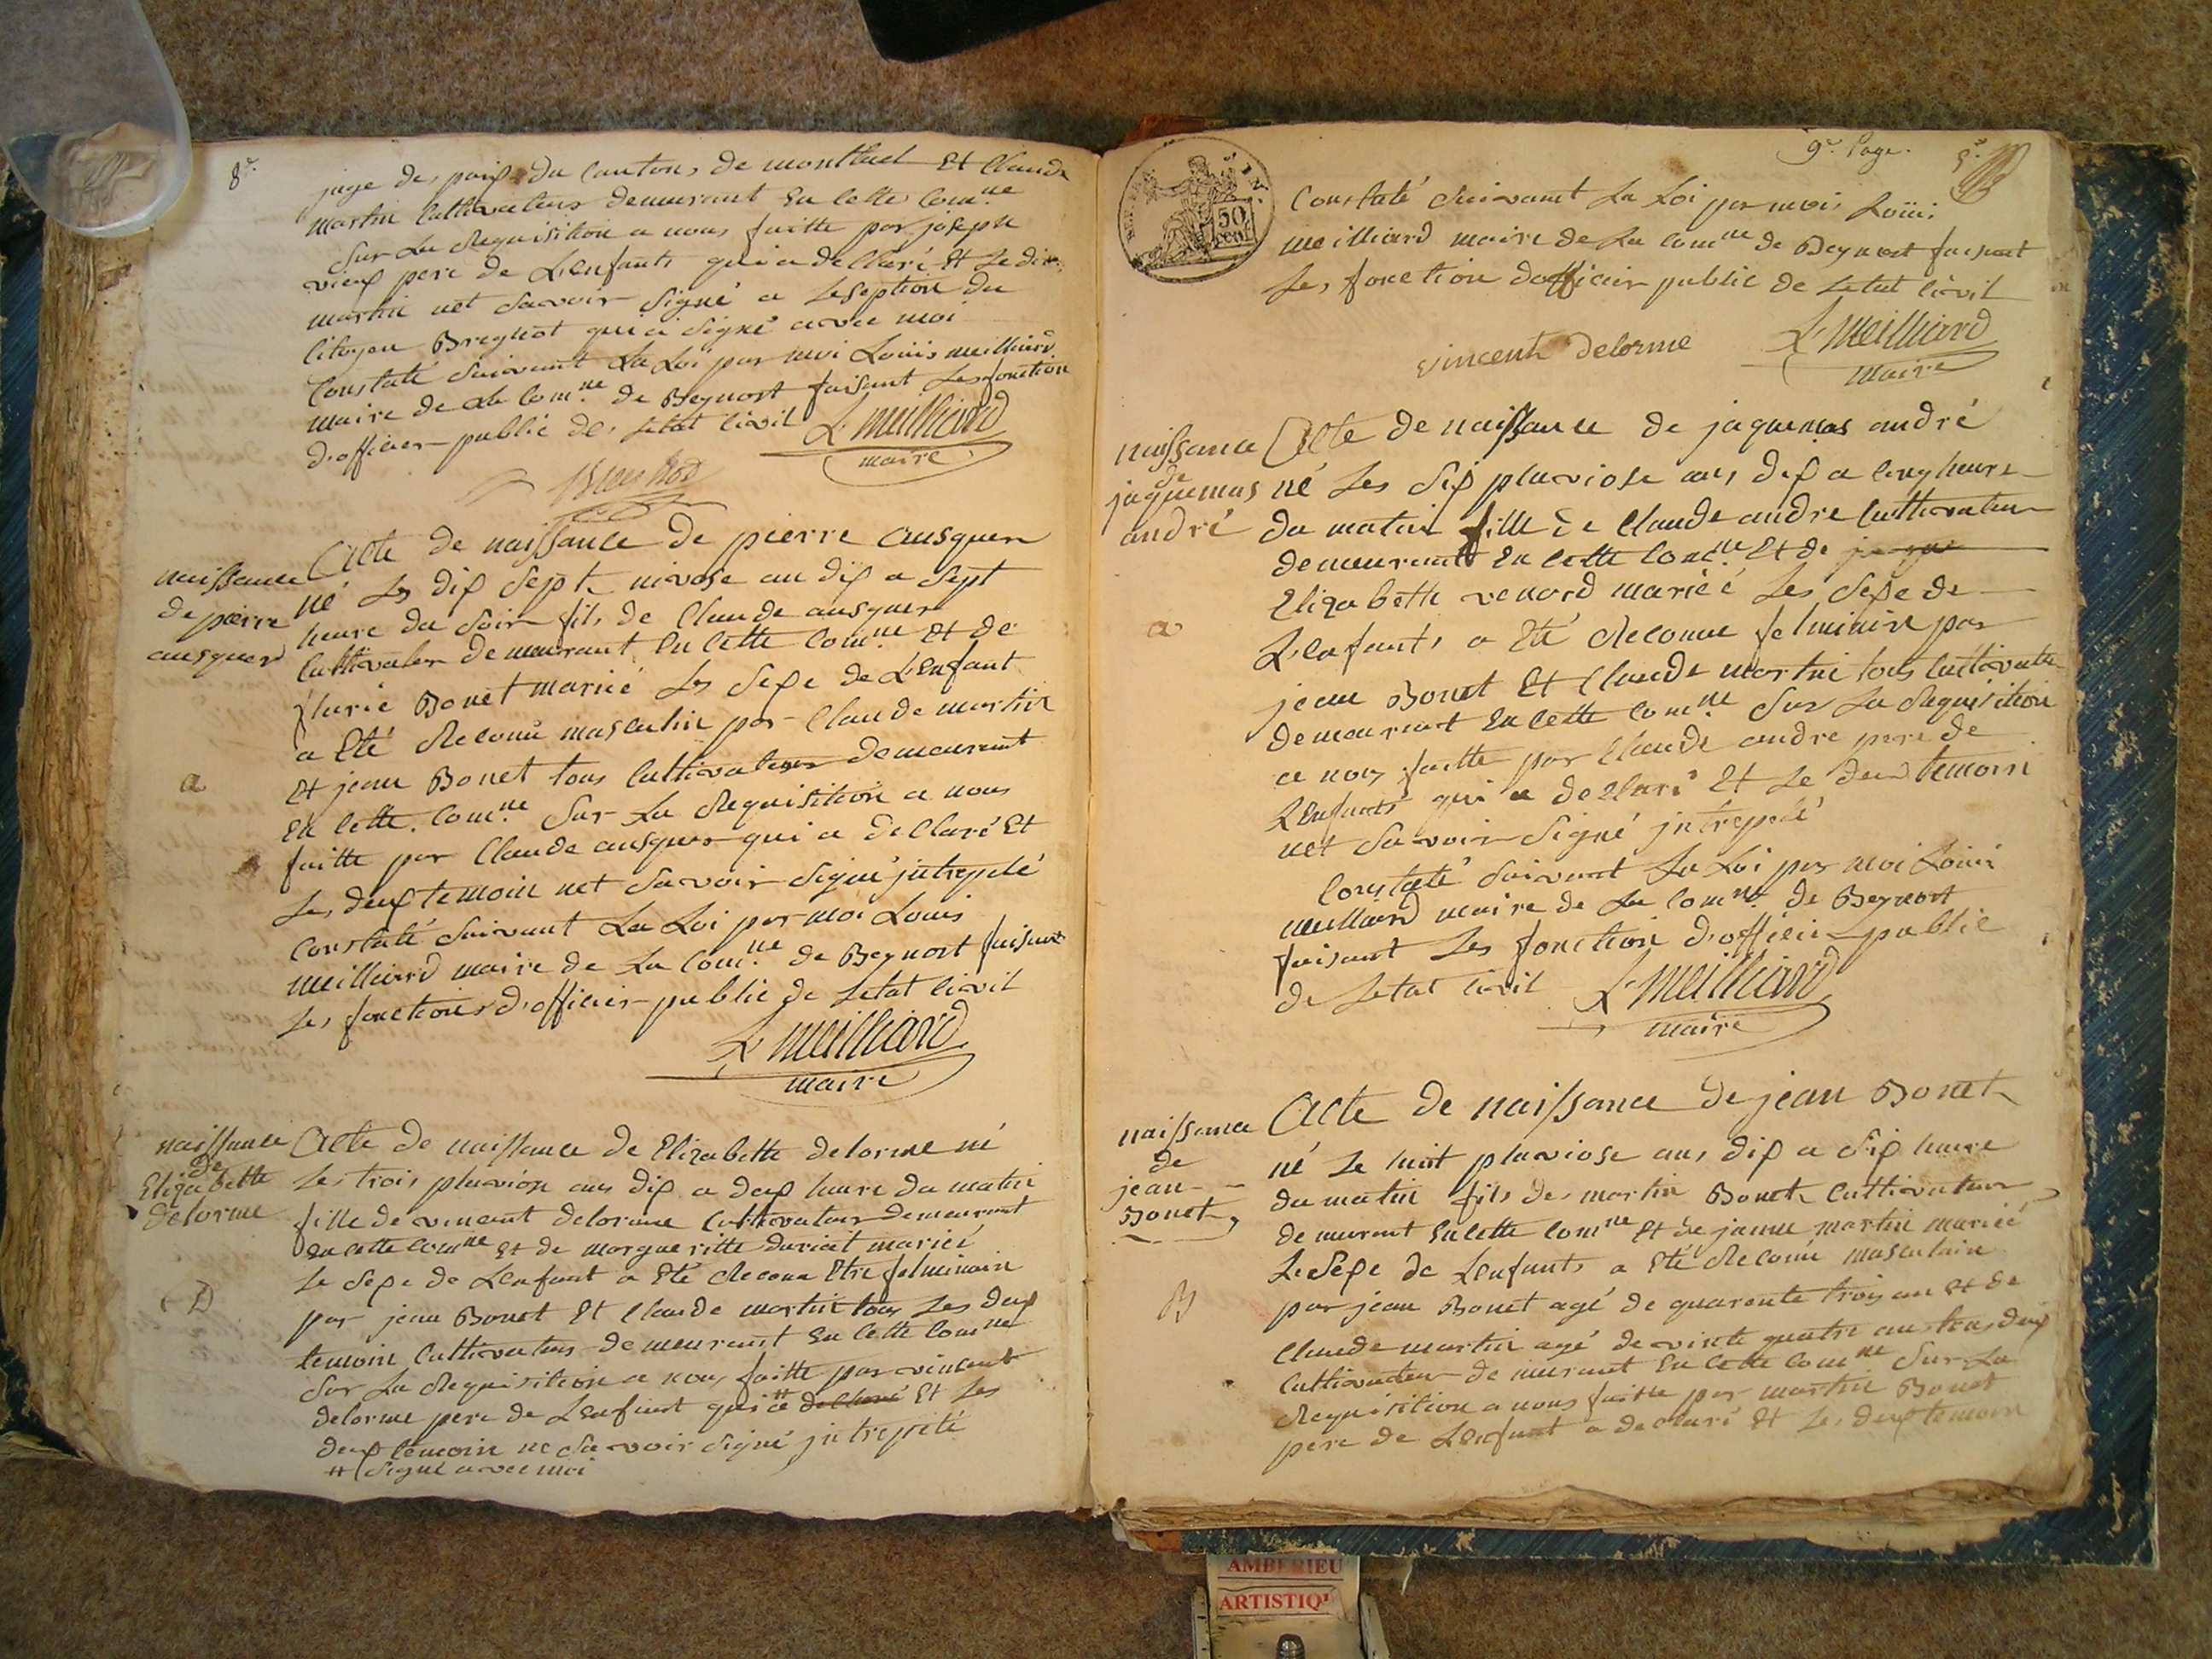 8e.
juge de paix du Canton de montluel Et Claude
martin Cultivateur demeurant En Cette Com.ne
Sur La Requisition a nous faitte par joseph
pere de L'enfants qui a declaré Et Le dit
martin net Savoir Signé a Leseption du
Citoyen Bregnot qui a Signé avec moi
Constaté Suivant La Loi par moi Louis meilliard
maire de la Com.ne de Beynost faisant Les fonction
d'officier public de Letat Civil L. Meilliard
maire
naissance
de pierre
ausquer
Acte de naissance de pierre ausquer
né Les dix Sept nivose an dix a Sept
heure du Soir fils de Claude ausquer
Cultivateur demeurant En Cette Com.ne Et de
Bonet mariéé Les Sexe de L'Enfant
a Eté Reconu masculin par Claude martin
Et jean Bonet tous Cultivateurs demeurant
En Cette Com.ne Sur La Requisition a nous
faitte par Claude ausquer qui a declaré Et
Les deux temoin net Savoir Signé jntrepelé
Constaté Suivant La Loi par moi Louis
meilliard maire de La Com.ne de Beynost faisant
Les fonctions d'officier public de Letat Civil
L. Meilliard
maire
a
naissance
de
Elizabette
delorme
Acte de naissance de Elizabette delorme né
Les trois pluviose ans dix a deux heure du matin
fille de vincent delorme Cultivateur demeurant
En Cette Com.ne Et de margueritte duriat mariéé
Le Sexe de L'enfant a Eté Reconu Etre felminain
par jean Bonet Et Claude martin tous Les deux
temoin Cultivateurs demeurant En Cette Com.ne
Sur La Requisition a nous faitte par vincent
delorme pere de L'enfant qui a # declaré Et Les
deux temoin ne Savoir Signé jntrepeté
# Signé avec moi
D
9e. Page.
50
cent
Constaté Suivant La Loi par moi Louis
meilliard maire de La Com.ne de Beynost faisant
Les fonction dofficier public de Letat Civil
vincent delorme L. Meilliard
maire
naissance
de
jaquemas
andré
Acte de naissance de jaquemas andré
né Les Six pluviose ans dix a Cinq heure
du matin fille de Claude andre Cultivateur
demeurant En Cette Com.ne Et de
Elizabette renard mariéé Les Sexe de
L'enfants a Eté Reconue felminin par
jean Bonet Et Claude martin tous Cultivateur
demeurant En Cette Com.ne Sur La Requisition
a nous faitte par Claude andre pere de
L'enfants qui a declaré Et Le deux temoin
net Savoir Signé jntrepelé
Constaté Suivant La Loi par moi Louis
meilliard maire de La Com.ne de Beynost
faisant Les fonction d'officier public
de Letat Civil L. Meilliard
maire
a
naissance
de
jean
Bonet
Acte de naissance de jean Bonet
né Le huit pluviose ans dix a Six heure
du matin fils de martin Bonet Cultivateur
demurant En Cette Com.ne Et de janne martin mariéé
Le Sexe de L'enfants a Eté Reconu masculain
par jean Bonet agé de quarente trois an Et de
Claude martin agé de vinte quatre ans tous deux
Cultivateur demurant En Cette Com.ne Sur La
Requisition a nous faitte par martin Bonet
pere de L'enfant a declaré Et Les deux temoin
B
AMBERIEU
ARTISTIQ